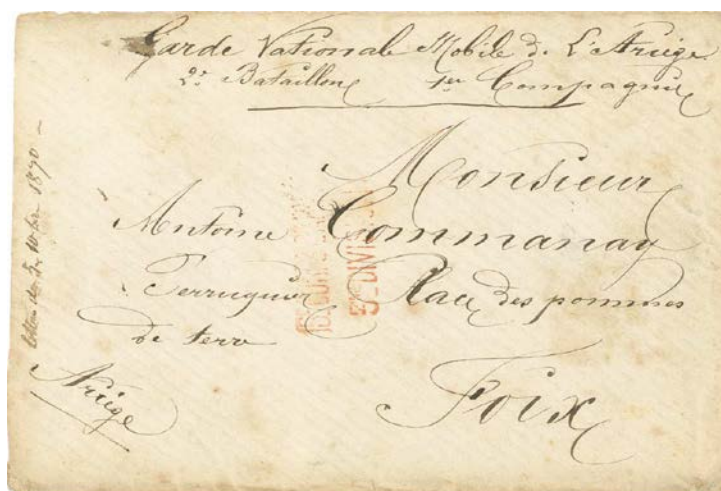 Garde Nationale Mobile de L'Ariége
2e Bataillon 1er Compagnie
Monsieur
Antoine Commanay
Perruquier Place des pommes
de terre
Foix
Ariége
5e DIVIS
1870